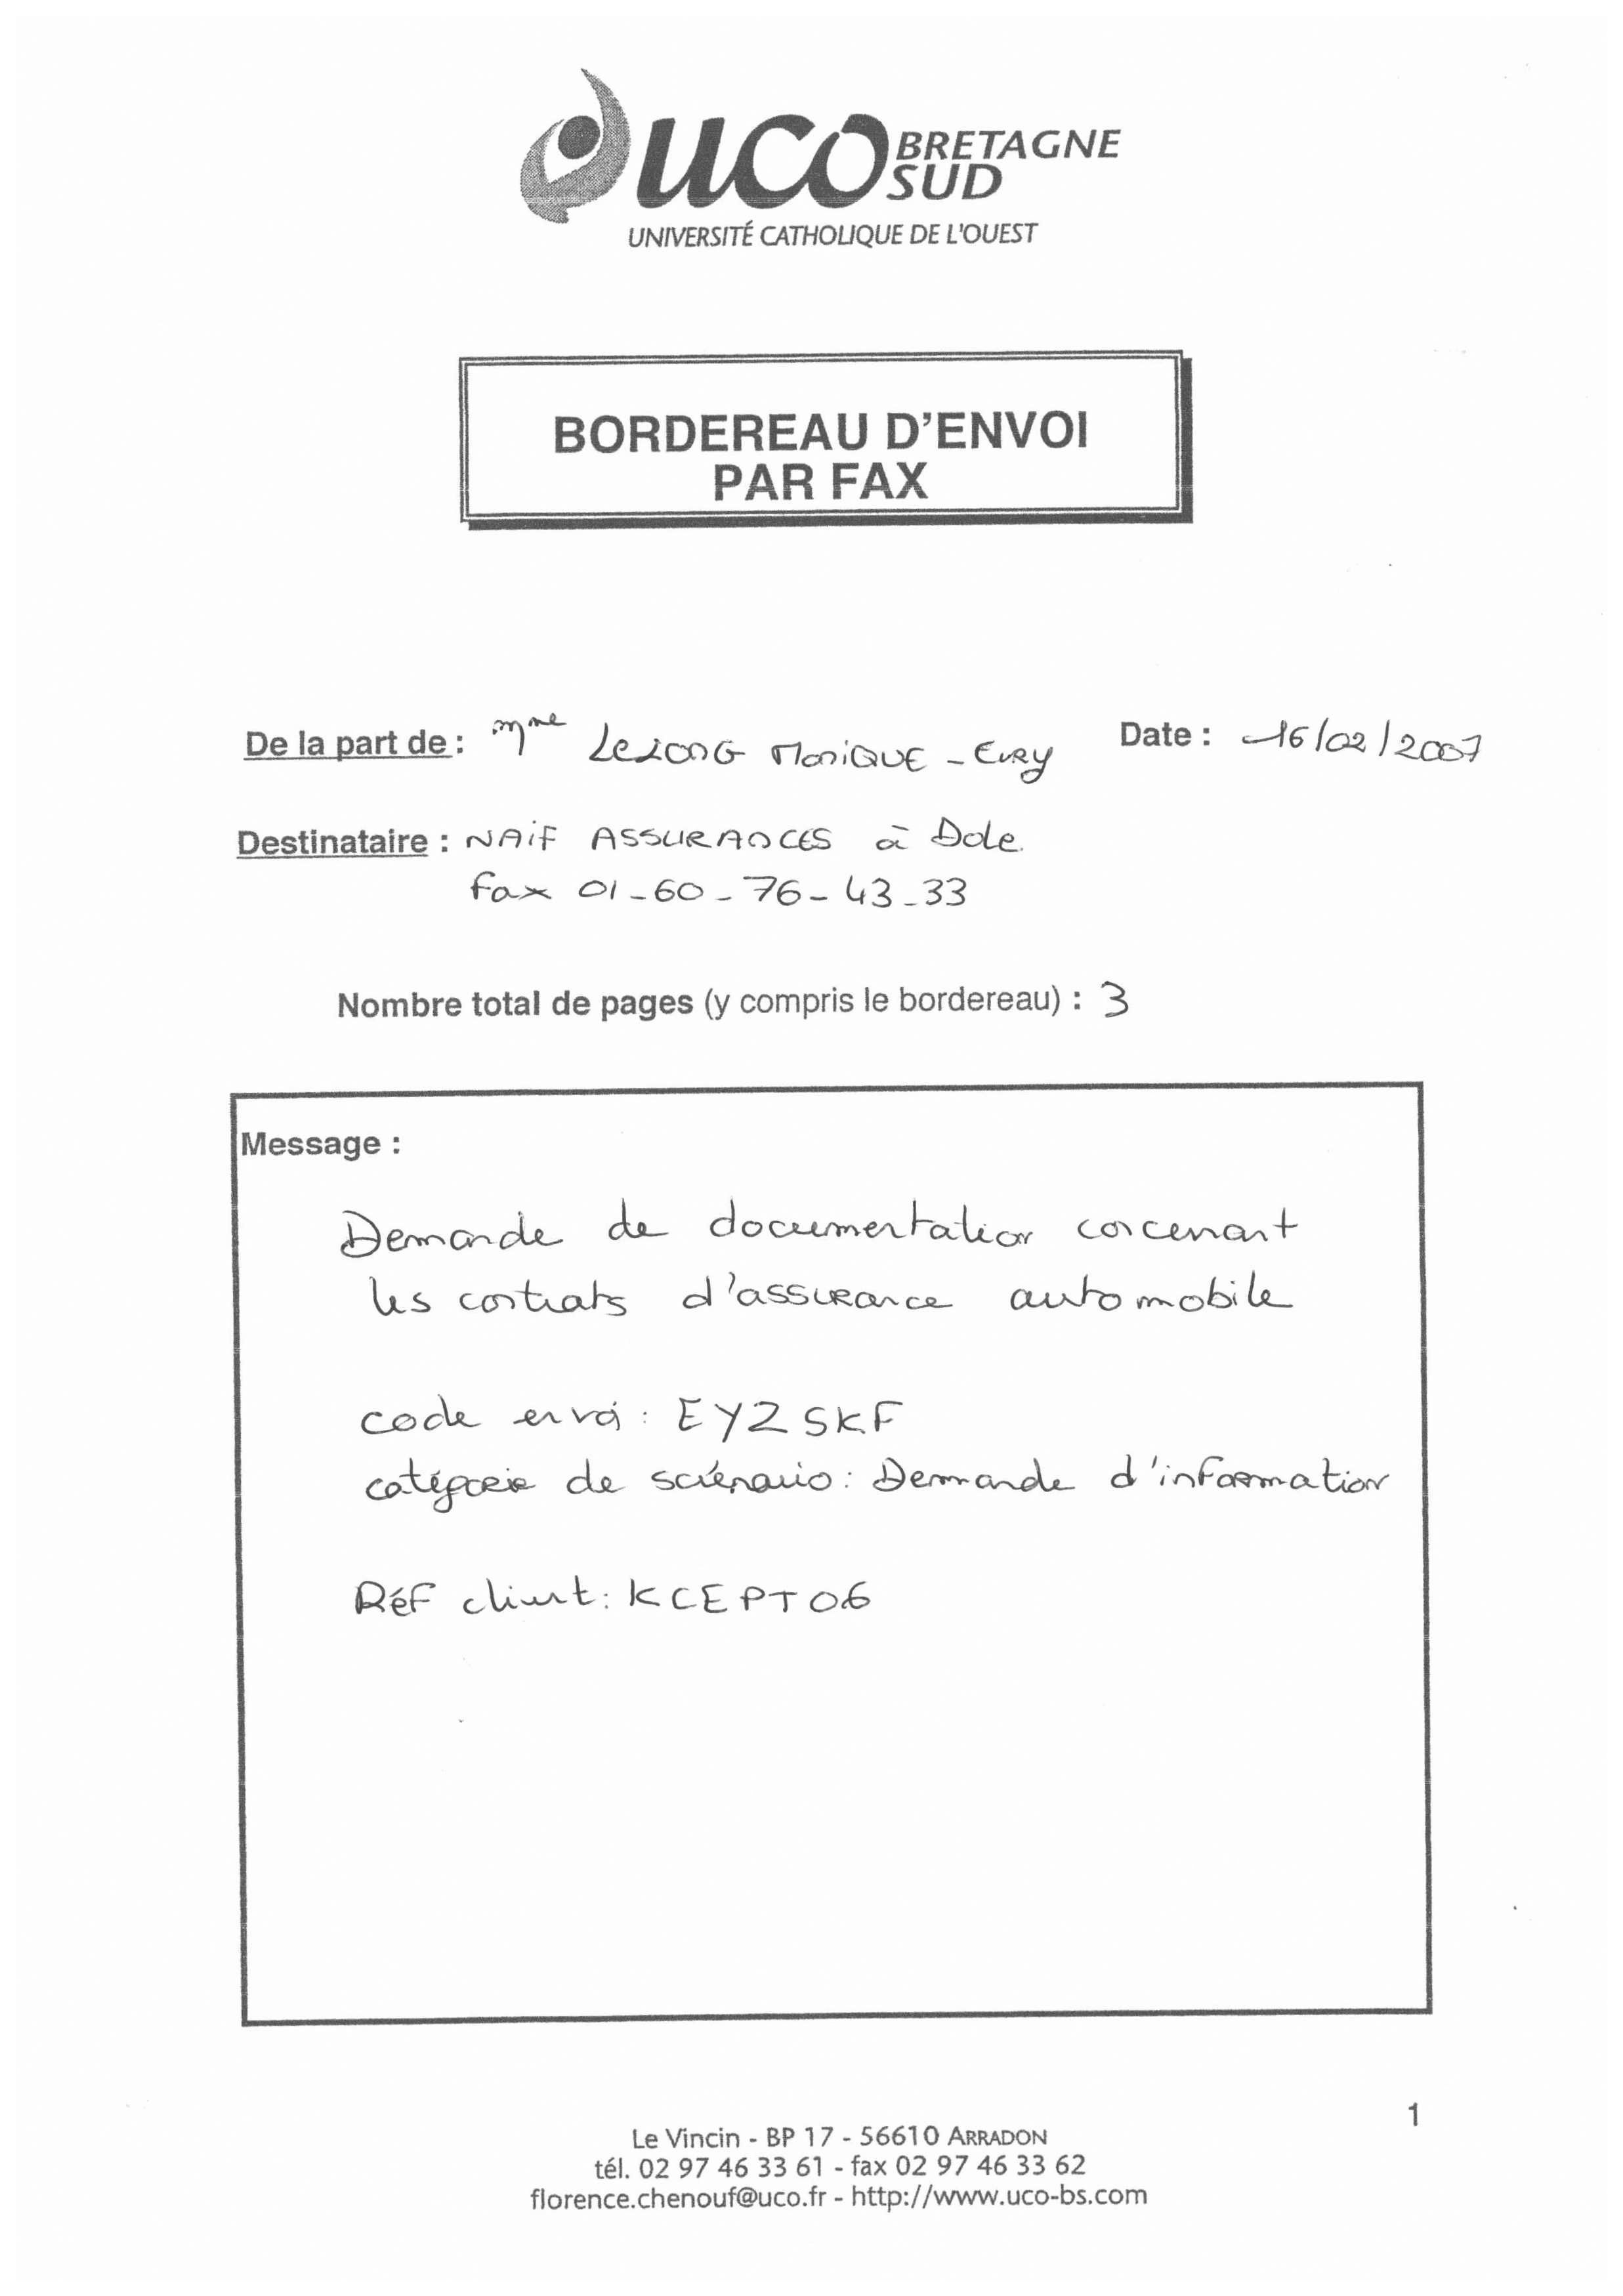 uco BRETAGNE SUD
UNIVERSITÉ CATHOLIQUE DE L'OUEST
BORDEREAU D'ENVOI
PAR FAX
De la part de : Mme LeLONG MONIQUE - EVRY Date : 16/02/2007
Destinataire : NAIF ASSURANCES à Dole.
fax 01-60-76-43-33
Nombre total de pages (y compris le bordereau) : 3
Message :
Demande de documentation concenant
les contrats d'assurance automobile
code envoi : EYZSKF
catégorie de scénario : Demande d'information
Réf client : KCEPT06
1
Le Vincin - BP 17 - 56610 ARRADON
tél. 02 97 46 33 61 - fax 02 97 46 33 62
florence.chenouf@uco.fr - http://www.uco-bs.com